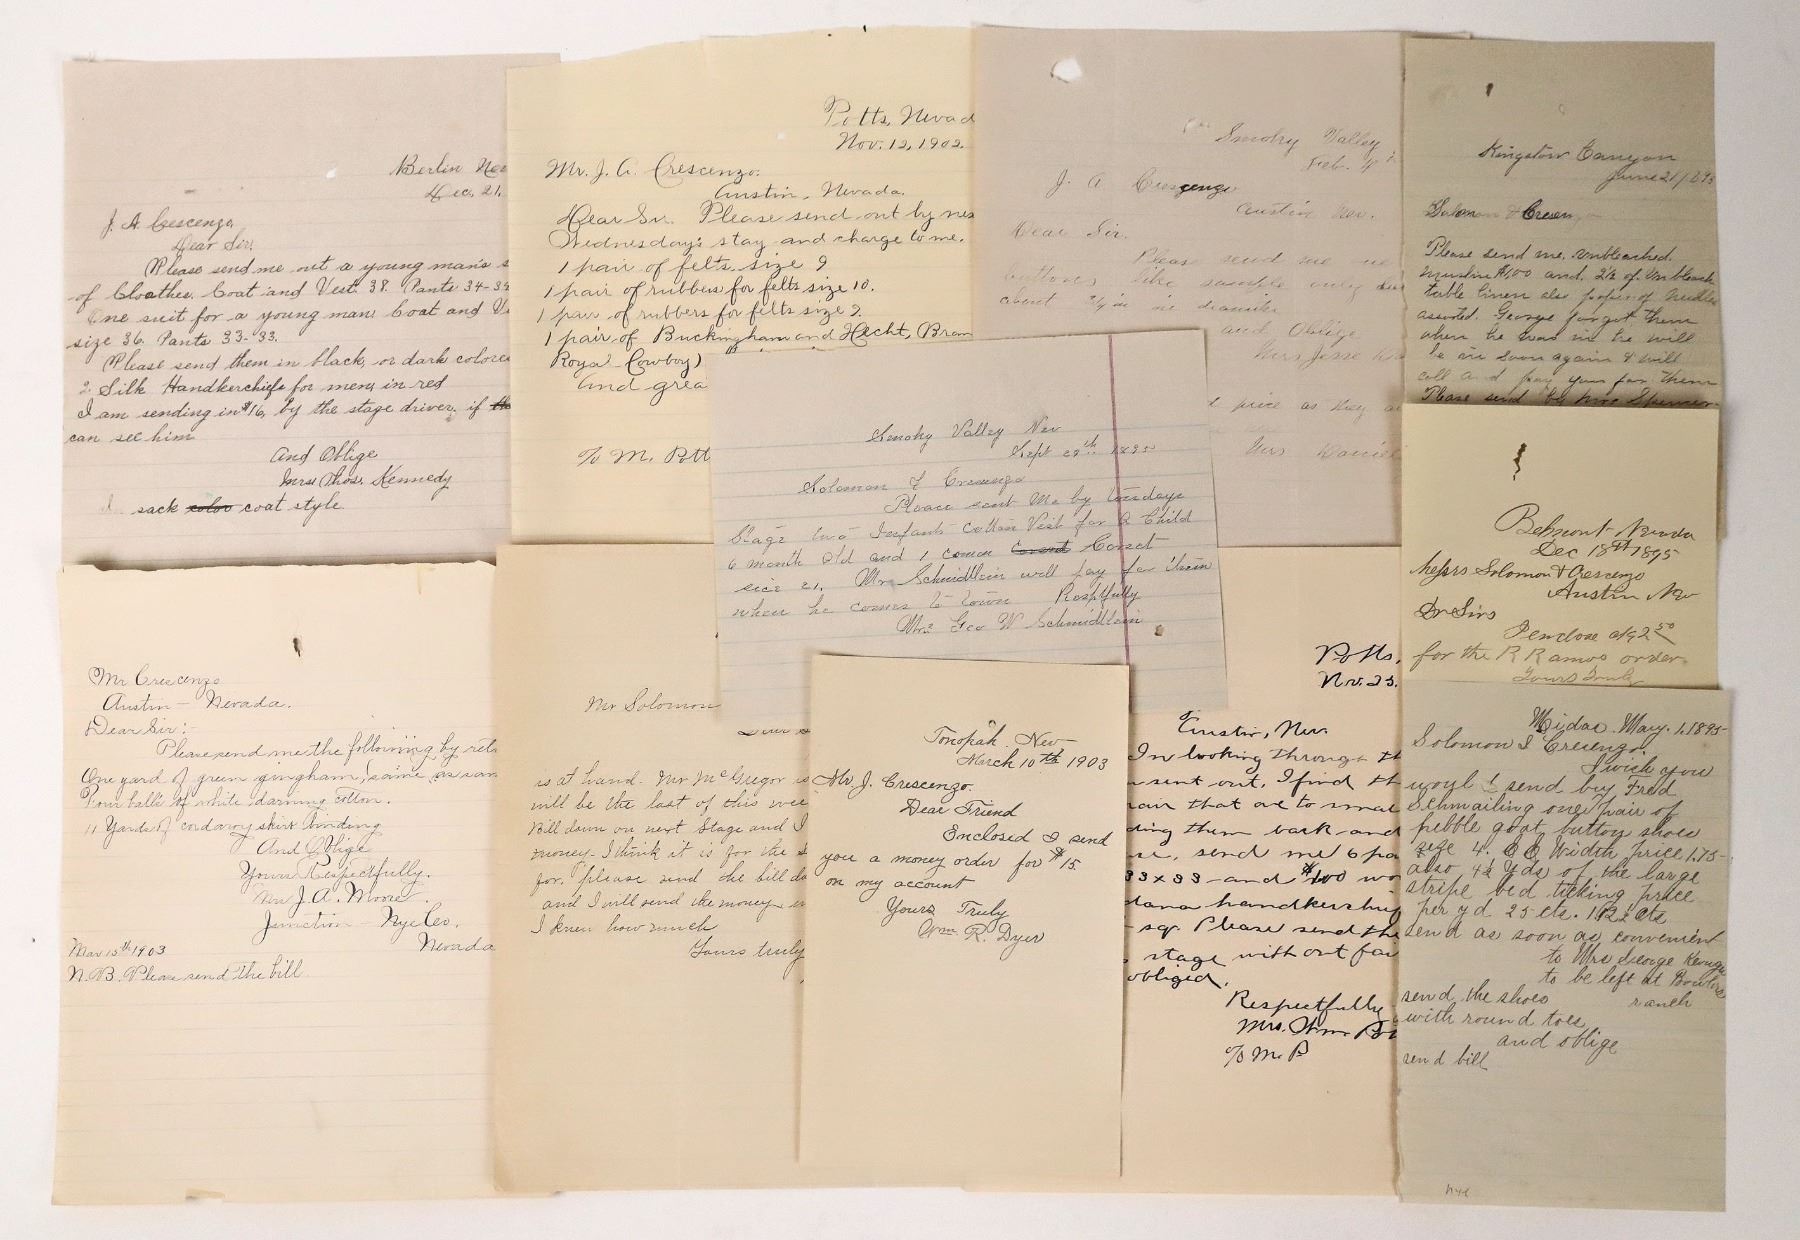 Berlin Nev
Dec. 21,
J. A. Crescenzo
Dear Sir!
Please send me out a young man's s
of Cloathes. Coat and Vest. 38. Pants 34-34
One suit for a young man, Coat and V
size 36. Pants 33-33.
Please send them in black, or dark colore
2 Silk Handkerchiefs for men, in red
I am sending in $16, by the stage driver, if the
can see him
And Oblige
Mrs Thos. Kennedy
sack color coat style
Potts, Nevad
Nov. 12, 1902.
Mr. J. A. Crescenzo.
Austin, Nevada.
Dear Sir. Please send out by nex
Wednesday's stay and charge to me.
1 pair of felts, size 9
1 pair of rubbers for felts size 10.
1 pair of rubbers for felts size 9.
1 pair of Buckingham and Hecht, Bran
Royal Cowboy)
and grea
c/o M. Pott
Smoky Valley
Feb. 4th
J. A Crescenzo
Austin Nev.
Dear Sir.
Please send me
buttons like sample only
about 3/4 in in diameter
and Oblige
Mrs Jesse
price as they a
Mrs Daniel
Kingston Canyon
June 21/1895
Solomon & Cresenzo
Please send me. unbleached.
muslin $1,00 and 2½ of Unbleach
table linen also paper of needles
assorted. George forgot them
when he was in he will
be in soon again & will
call and pay you for them
Please send by Mrs Spencer
Smoky Valley Nev
Sept 29th 1895
Solomon & Crescenzo
Please sent Me by tuesdays
Stage two Infants Cotton Vest for a Child
6 month old and 1 comon Corset
size 21. Mr Schmidtlein will pay for them
when he comes to town Resptfully
Mrs Geo W Schmidtlein
Belmont Nevada
Dec 18th 1895
Messrs Solomon & Crescenzo
Austin Nev
Dr Sirs
I enclose ck $2.50
for the R Ramos order.
Yours Truly
Mr Crescenzo
Austin - Nevada.
Dear Sir:-
Please send me the following by ret
One yard of green gingham, same as sam
Four balls of white darning cotton.
11 Yards of corduroy skirt binding
And Oblige
Yours Respectfully.
Mrs J. A. Moore.
Junction - Nye Co.
Nevada
Mar 15th 1903
N.B. Please send the bill
Mr Solomon
is at hand. Mr McGregor is
will be the last of this wee
Bill down on next Stage and I
money. I think it is for the s
for, please send the bill do
and I will send the money
I knew how much
Yours truly
Tonopah Nev
March 10th 1903
Mr. J. Crescenzo.
Dear Friend
Enclosed I send
you a money order for $15.
on my account
Yours Truly
Wm. R. Dyer
Potts,
Nov. 25.
Austin, Nev.
In looking through th
sent out, I find th
pair that are to small
ding them back and
send me 6 pa
33 x 33 and $1.00 wo
dana handkerchie
sq. Please send the
stage without fai
obliged.
Respectfully
Mrs. Wm. Pot
c/o M. P
Midas. May. 1. 1895
Solomon & Cresenzo.
I wish you
woyld send by Fred
Schmaling one pair of
pebble goat button shoes
size 4. EE Width price 1.75
also 4½ Yds of the large
stripe bed ticking price
per yd 25 cts.
send as soon as convenient
to Mrs George
to be left at
ranch
send the shoes
with round toes
and oblige
send bill
nye